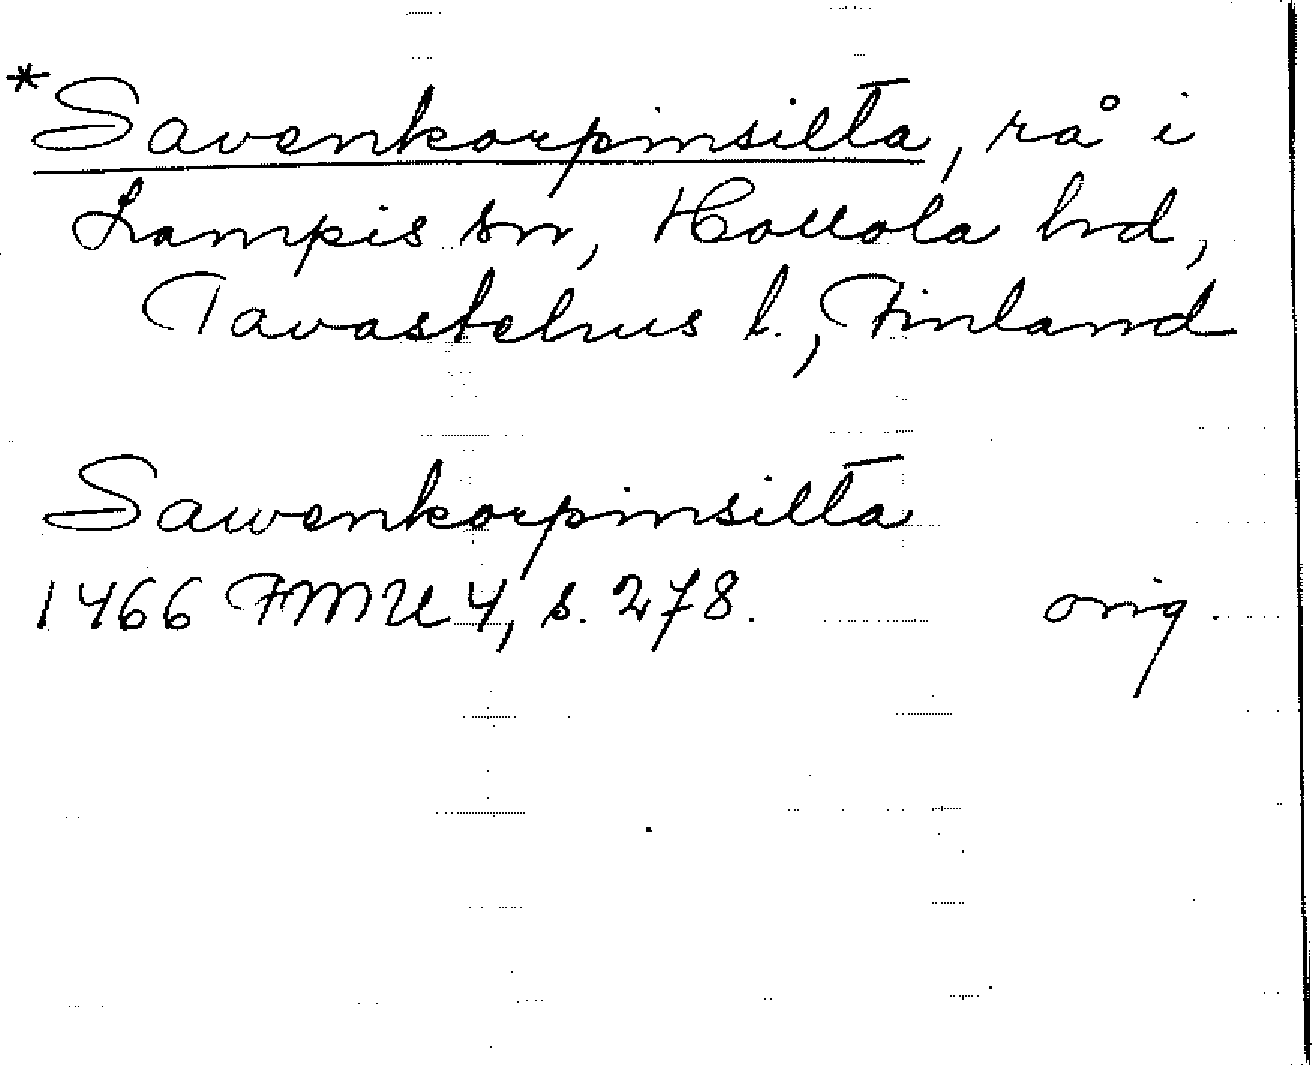 *Savenkorpinsilta, rå i
Lampis sn, Hollola hd,
Tavastehus l., Finland
Sawenkorpinsilta
1466 FMU 4, s. 278. orig.